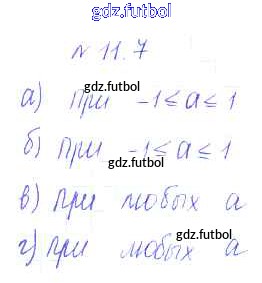 gdz.futbol
№ 11.7
gdz.futbol
а) при -1 ≤ a ≤ 1
gdz.futbol
б) при -1 ≤ a ≤ 1
в) при любых a
gdz.futbol
г) при любых a
gdz.futbol